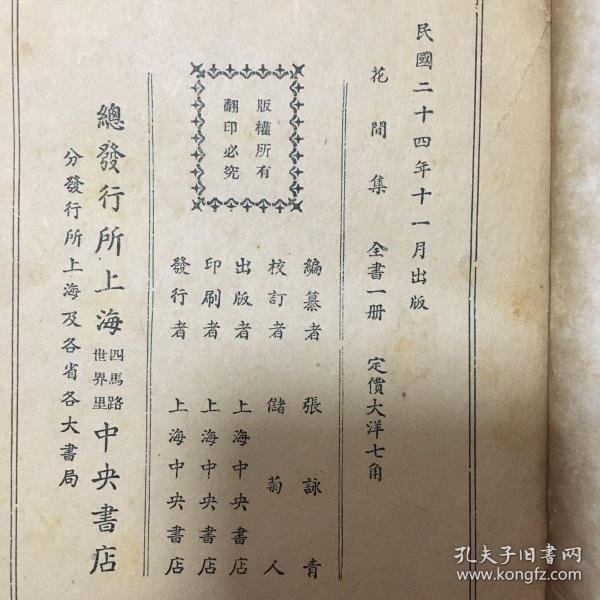 民國二十四年十一月出版
花間集 全書一册 定價大洋七角
版權所有
翻印必究
編纂者 張詠青
校訂者 儲菊人
出版者 上海中央書店
印刷者 上海中央書店
發行者 上海中央書店
總發行所上海四馬路世界里中央書店
分發行所上海及各省各大書局
孔夫子旧书网
www.kongfz.com